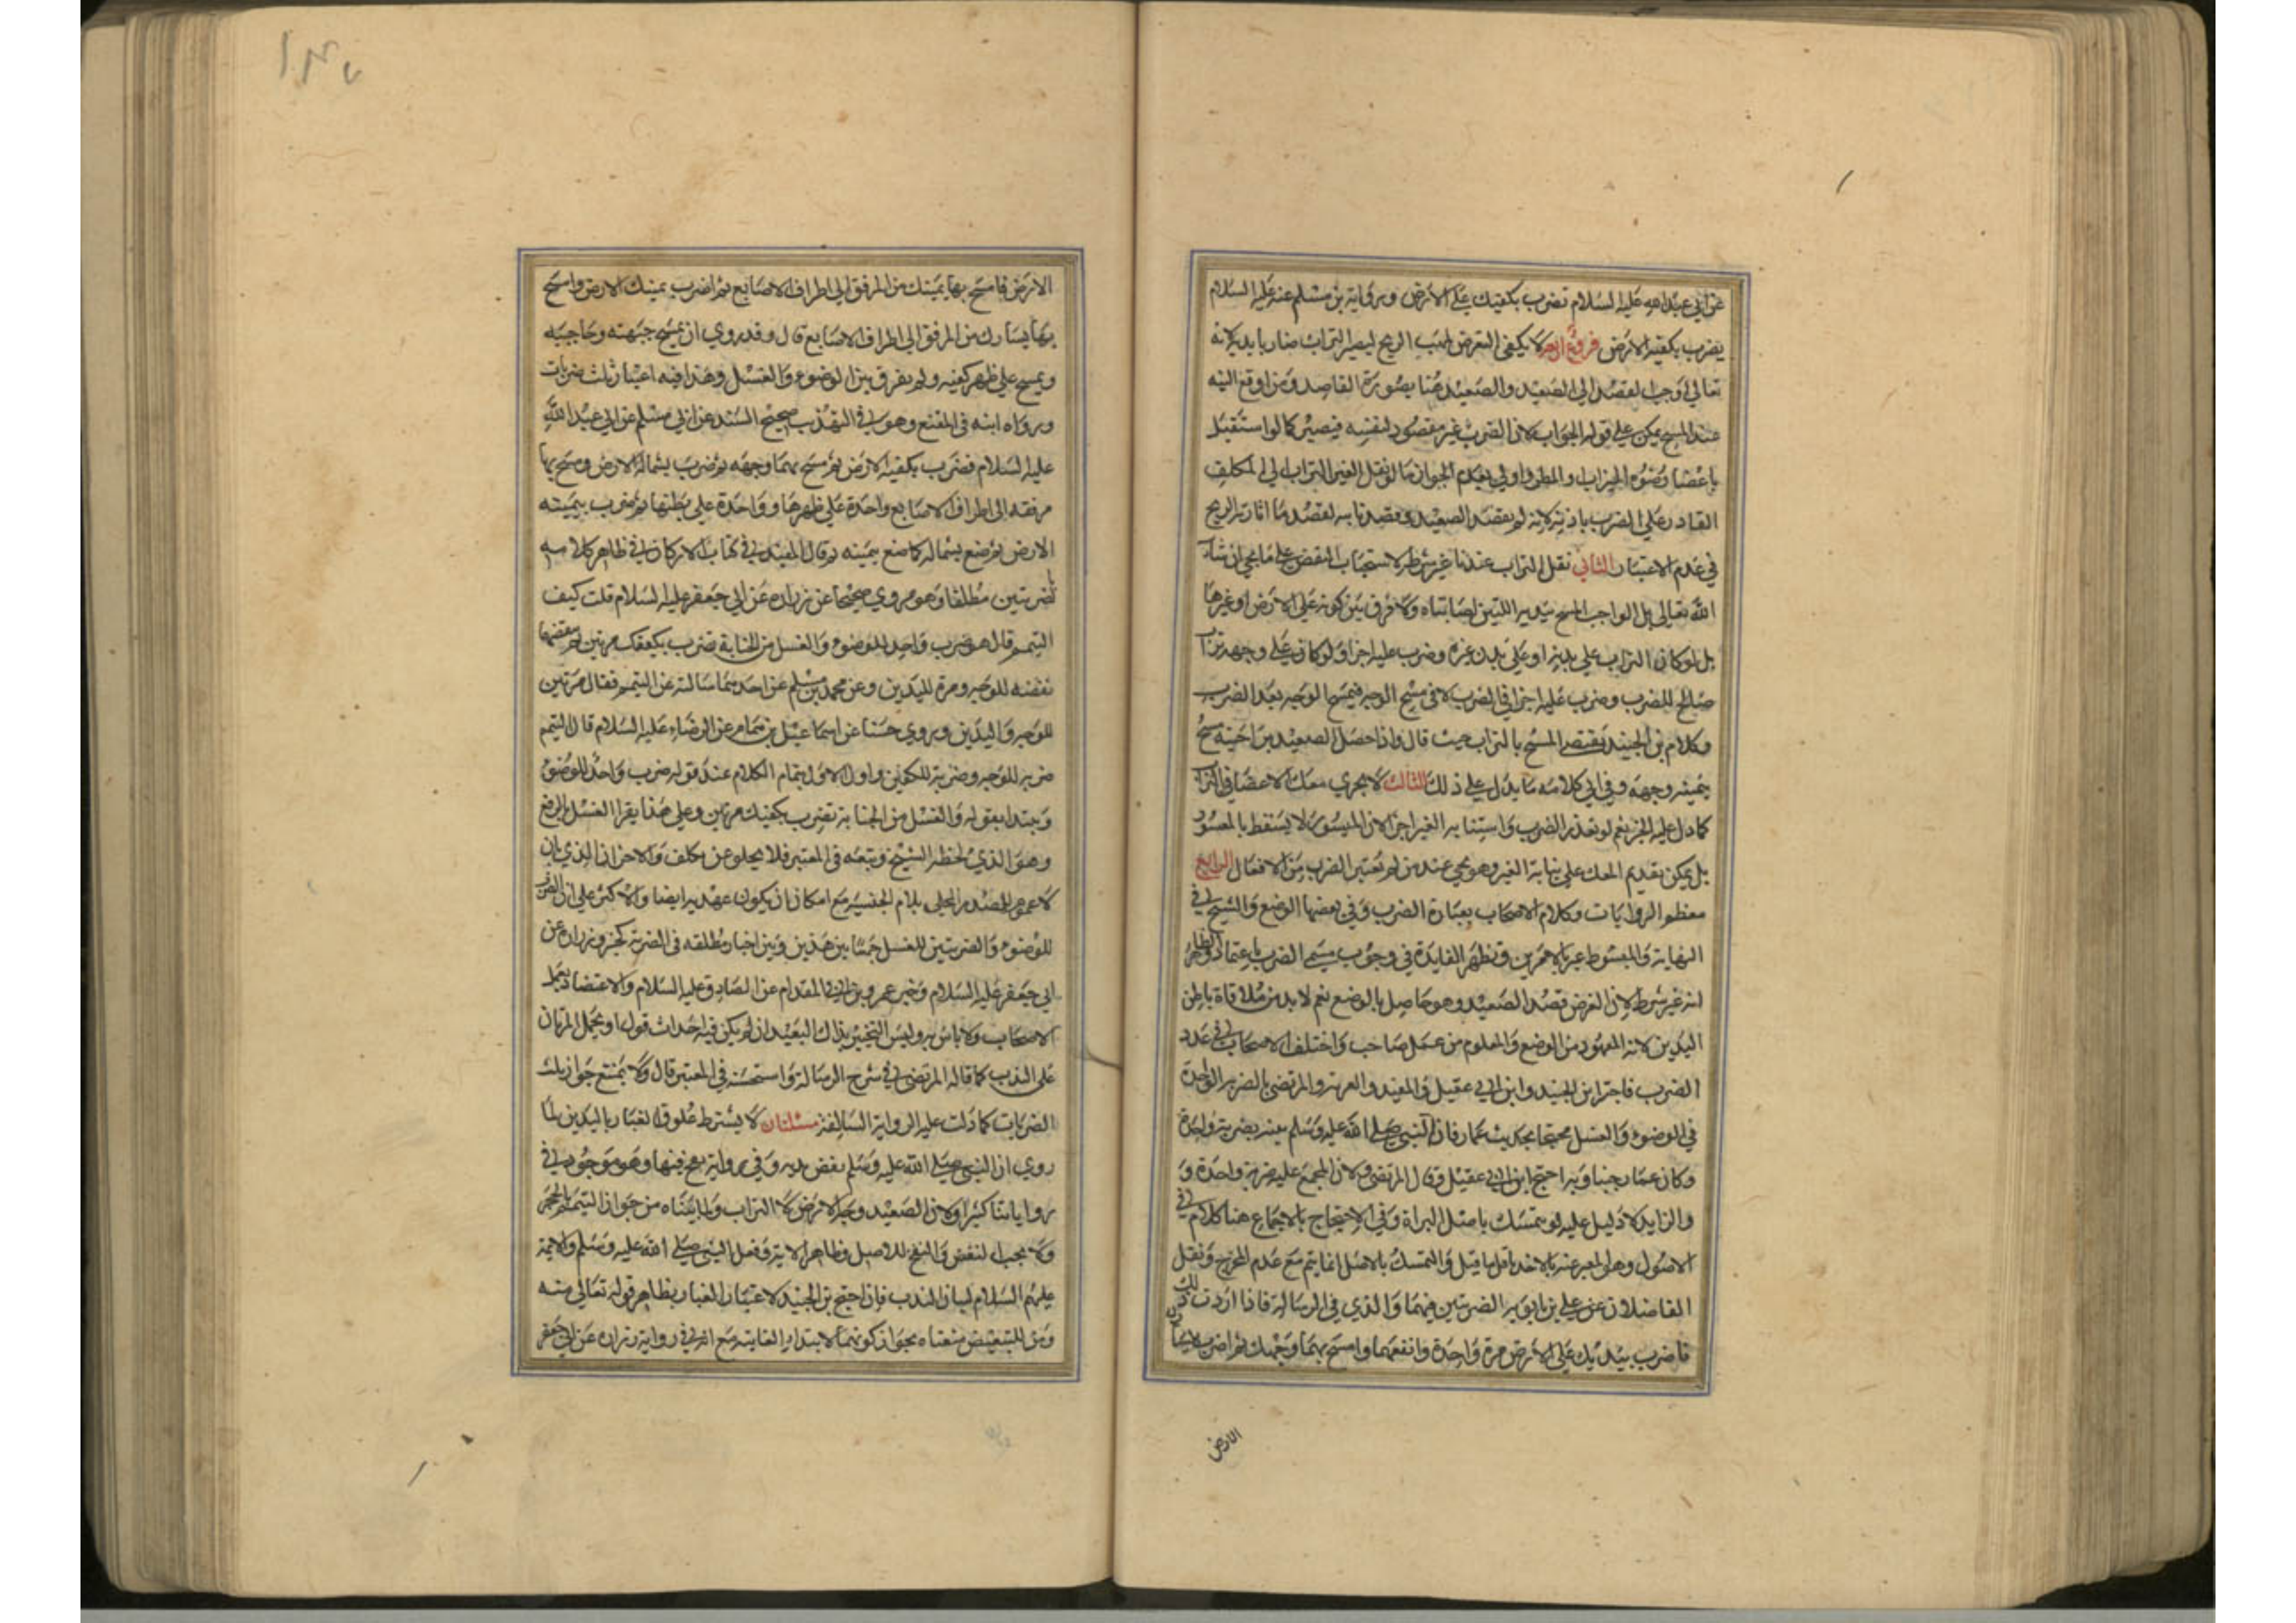 عن ابي عبدالله عليه السلام تضرب بكفيك على الارض وروايه بن مسلم عنه عليه السلام
يضرب بكفيه الارض فروع اربعه لا يكفي التعرض لمهب الريح ليصير التراب ضاربا يديه لانه
تعالى اوجب القصد الى الصعيد والصعيد هنا بصورة القاصد ومن اوقع اليه
عند المسح يمكن على قوله الجواب لان الضرب غير مقصود لنفسه فيصير كما لو استقبل
باعضا وضوه الميزاب والمطر واولى بعدم الجواز ما لو نقل الغير التراب الى المكلف
القادر على الضرب باذنه لانه لم يقصد الصعيد وقصد نايبه لقصد ما اثارته الريح
في عدم الاعتبار الثاني نقل التراب عندنا غير شرط لاستحباب النفض على ما يجي ان شاء
الله تعالى بل الواجب المسح بيديه اللتين اصابتاه ولا فرق بين كونه على الارض او غيرها
بل لو كان التراب على بدنه او على بدن غيره وضرب عليه اجزا ولو كان على وجهه تراب
صالح للضرب وضرب عليه اجزا في الضرب لا في مسح الوجه فيمسح الوجه بعد الضرب
وكلام بن الجنيد يقتضي المسح بالتراب حيث قال واذا حصل الصعيد براحتيه مسح
بيمينه وجهه وفي باقي كلامه ما يدل على ذلك الثالث لا يجزي معك الاعضا في التراب
كما دل عليه الخبر نعم لو تعذر الضرب واستنابه الغير اجزا لان الميسور لا يسقط بالمعسور
بل يمكن تقديم المعك على نيابة الغير وهو يجي عند من لم يعتبر الضرب من الافعال الرابع
معظم الروايات وكلام الاصحاب بعبارة الضرب وفي بعضها الوضع والشيخ في
النهايه والمبسوط عبر بالامرين وتظهر الفايدة في وجوب مسمى الضرب باعتماد والظاهر
انه غير شرط لان الغرض قصد الصعيد وهو حاصل بالوضع نعم لا بد من ملاقاة باطن
اليدين لانه المعهود من الوضع والمعلوم من عمل صاحب واختلف الاصحاب في عدد
الضرب فاجتزا بن الجنيد وابن ابي عقيل والمفيد والعريه والمرتضى بالضربه الواحدة
في الوضوء والغسل محتجا بحديث عمار فان النبي صلى الله عليه وسلم بينه بضربه واحدة
وكان عمار جنبا وبه احتج ابن ابي عقيل وقال المرتضى ولان المجمع عليه ضربة واحدة و
والزايد لا دليل عليه لو يتمسك باصل البراة وفي الاحتجاج بالاجماع هنا كلام في
الاصول وهو المعبر عنه بالاخذ باقل ما قيل والتمسك بالاصل انما يتم مع عدم المخرج ونقل
الفاضلان عن علي بن بابويه الضربتين فيهما والذي في الرسالة فاذا اردت ذلك
فاضرب بيديك على الارض مرة واحدة وانفضهما وامسح بهما وجهك ثم اضرب بيسارك
الارض
الارض فامسح بها يمينك من المرفق الى اطراف الاصابع ثم اضرب بيمينك الارض وامسح
بها يسارك من المرفق الى اطراف الاصابع قال وقد روي ان يمسح جبهته وحاجبيه
ويمسح على ظهر كفيه ولم يفرق بين الوضوء والغسل وهذا فيه اعتبار ثلث ضربات
ورواه ابنه في المقنع وهو في التهذيب صحيح السند عن ابن مسلم عن ابي عبد الله
عليه السلام فضرب بكفيه الارض ثم مسح بهما وجهه ثم ضرب بشماله الارض ومسح بها
مرفقه الى اطراف الاصابع واحدة على ظهرها وواحدة على بطنها ثم ضرب بيمينه
الارض ثم صنع بشماله كما صنع بيمينه ثم قال المفيد في كتاب الاركان في ظاهر كلامه
بالضربتين مطلقا وهو مروي صحيحا عن زراره عن ابي جعفر عليه السلام قلت كيف
التيمم قال هو ضرب واحد للوضوء والغسل من الجنابة تضرب بكفيك مرتين ثم تنفضهما
نفضه للوجه ومرة لليدين وعن محمد بن مسلم عن احدهما سالته عن التيمم فقال مرتين
للوجه واليدين وروي حسنا عن اسماعيل بن همام عن الرضا عليه السلام قال التيمم
ضربه للوجه وضربة للكفين واول الاول بتمام الكلام عند قوله ضرب واحد للوضوء
وبيتدا بقوله والغسل من الجنابة تضرب بكفيك مرتين وعلى هذا يقرا الغسل بالرفع
وهو الذي لحظه الشيخ وتبعه في المعتبر فلا يخلو عن تكلف والاحتراز الذي بان
لا عموم للمصدر المحلى بلام الجنسيه مع امكان ان يكون عهديه ايضا والاكثر على ان الضرب
للوضوء والضربتين للغسل جمعا بين هذين وبين اخبار مطلقه في الضربة كخبر زراره عن
ابي جعفر عليه السلام وخبر عمرو بن ابي المقدام عن الصادق عليه السلام والاعتضاد بعمل
الاصحاب ولا باس به وليس التخيير بذاك البعيد ان لم يكن فيه احداث قول او يحمل المرتان
على الندب كما قاله المرتضى في شرح الرسالة واستحسنه في المعتبر قال ولا يمتنع جواز تلك
الضربات كما دلت عليه الرواية السالفة مسئلتان لا يشترط علوق الغبار باليدين لما
روي ان النبي صلى الله عليه وسلم نفض يديه وفي رواية نفخ فيها وهو موجود في
رواياتنا كثيرا ولان الصعيد وجه الارض لا التراب ولما بيناه من جواز التيمم بالحجر
ولا يجب النفض والنفخ للاصل وظاهر الاية وفعل النبي صلى الله عليه وسلم والائمة
عليهم السلام لبيان الندب فان احتج بن الجنيد لاعتبار الغبار بظاهر قوله تعالى منه
ومن للتبعيض منعناه بجواز كونها لابتداء الغاية مع انه في رواية زراره عن ابي جعفر